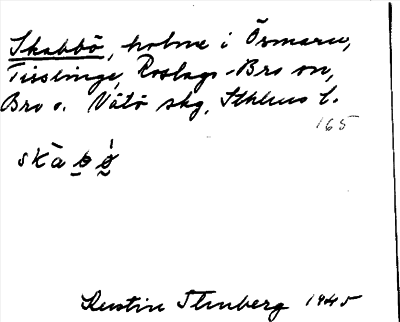 Skabbö, holme i Örmaren,
Tisslinge, Roslags-Bro sn,
Bro o. Vätö skg, Sthlms l.
165
Kerstin Stenberg 1945